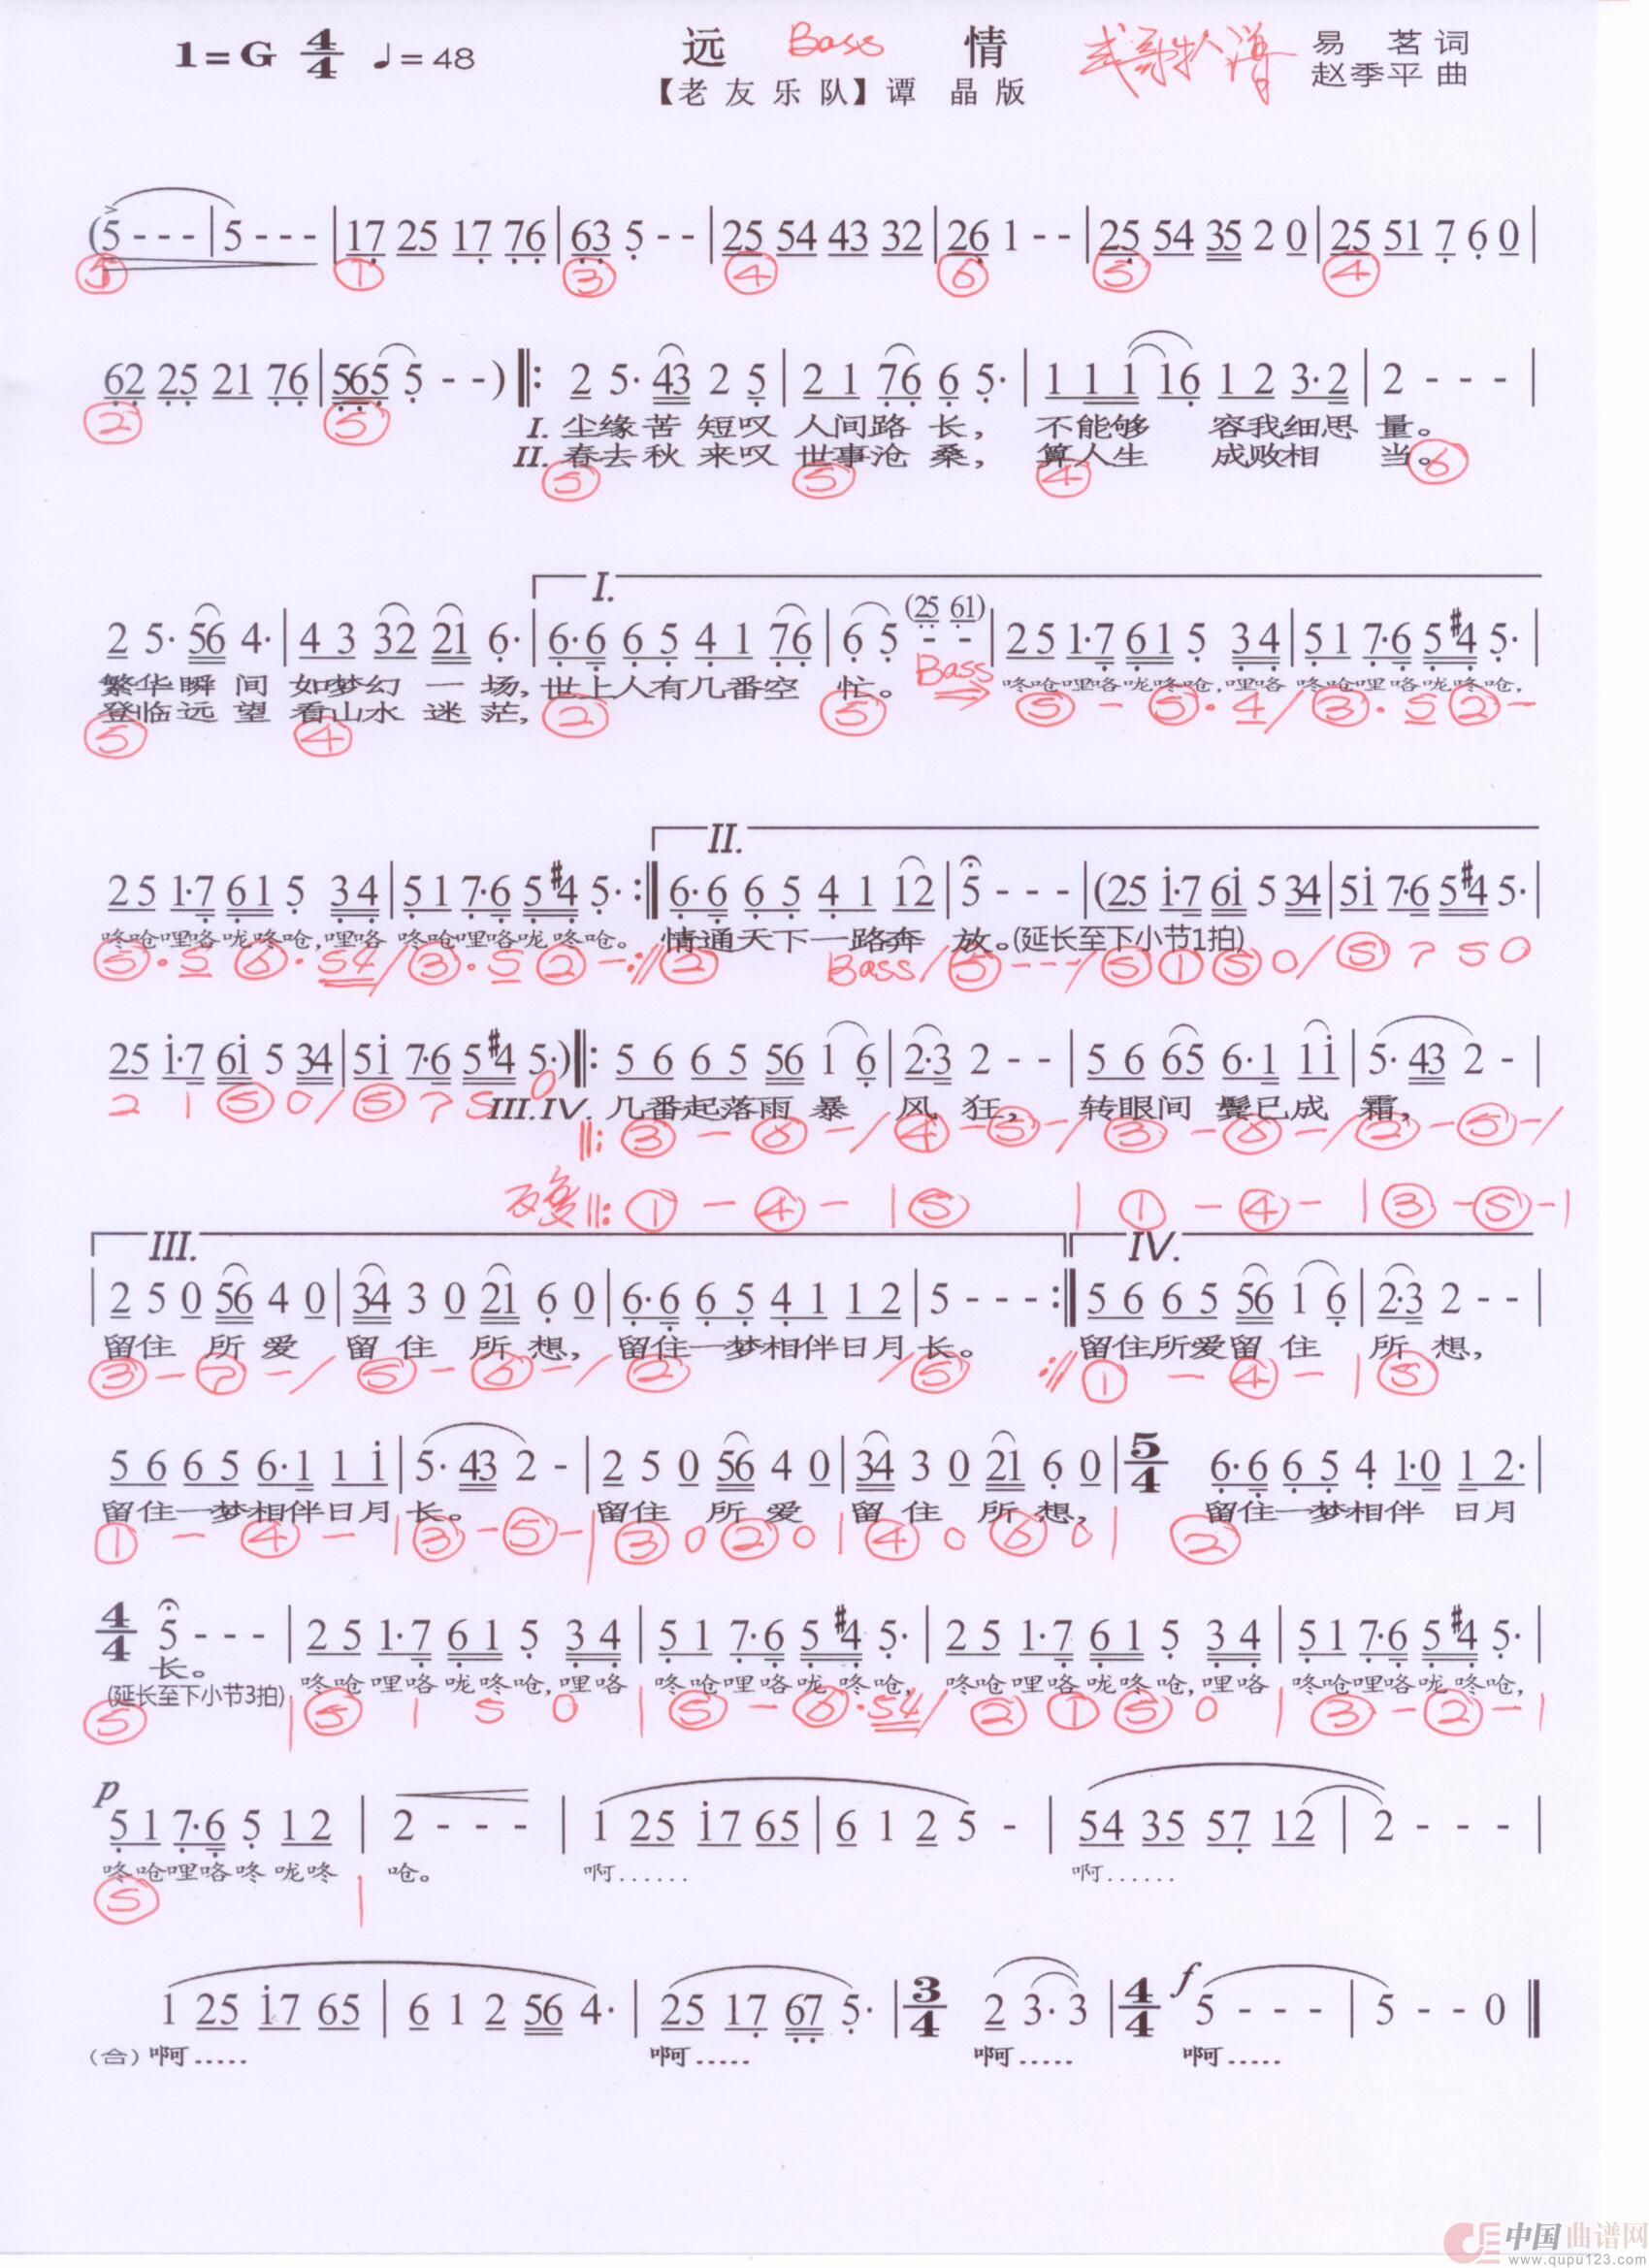 1=G 4/4 ♩=48 远 Bass 情 易 茗 词
【老友乐队】谭 晶 版 赵季平 曲
(5 - - - | 5 - - - | 17 25 17 76 | 63 5 - - | 25 54 43 32 | 26 1 - - | 25 54 35 2 0 | 25 51 7 6 0 |
⑤ ① ③ ④ ⑥ ⑤ ④
62 25 21 76 | 565 5 - -) ‖: 2 5· 43 2 5 | 2 1 76 6 5· | 1 1 1 16 1 2 3·2 | 2 - - - |
I. 尘缘苦 短叹 人间路 长， 不能够 容我细思 量。
II. 春去秋 来叹 世事沧 桑， 算人生 成败相 当。
② ⑤ ⑤ ⑤ ④ ⑥
I.
2 5· 56 4· | 4 3 32 21 6· | 6·6 6 5 4 1 76 | 6 5 (25 61) - - | 25 1·7 61 5 34 | 51 7·6 5#4 5· |
繁华瞬 间 如梦幻 一 场， 世上人有几番空 忙。 Bass 咚呛哩咯咙咚呛，哩咯 咚呛哩咯咙咚呛，
登临远 望 看山水 迷 茫，
⑤ ④ ② ⑤ ⑤ - ⑤· 4 / ③· 5 ② -
II.
25 1·7 61 5 34 | 51 7·6 5#4 5· :‖ 6·6 6 5 4 1 12 | 5 - - - | (25 1·7 61 5 34 | 51 7·6 5#4 5· |
咚呛哩咯咙咚呛，哩咯 咚呛哩咯咙咚呛。 情通天下一路奔 放。(延长至下小节1拍)
⑤· 5 ⑥· 54 / ③· 5 ② - :// ② Bass / ⑤ - - - / ⑤ ① ⑤ 0 / ⑤ 7 5 0
25 1·7 61 5 34 | 51 7·6 5#4 5·) ‖: 5 6 6 5 56 1 6 | 2·3 2 - - | 5 6 65 6·1 11 | 5· 43 2 - |
2 1 ⑤ 0 / ⑤ 7 5 0 III.IV. 几番起落雨 暴 风 狂， 转眼间 鬓已成 霜，
‖: ③ - ⑥ - / ④ - ⑤ - / ③ - ⑥ - / ② - ⑤ - /
反复 ‖: ① - ④ - | ⑤ | ① - ④ - | ③ - ⑤ - |
III. IV.
| 2 5 0 56 4 0 | 34 3 0 21 6 0 | 6·6 6 5 4 1 1 2 | 5 - - - :‖ 5 6 6 5 56 1 6 | 2·3 2 - - |
留住 所 爱 留 住 所 想， 留住一梦相伴日月 长。 留住所爱留 住 所 想，
③ - ⑦ - / ⑤ - ⑥ - / ② / ⑤ :// ① - ④ - | ⑤
5 6 6 5 6·1 1 1 | 5· 43 2 - | 2 5 0 56 4 0 | 34 3 0 21 6 0 | 5/4 6·6 6 5 4 1·0 1 2· |
留住一梦相伴日月 长。 留住 所 爱 留 住 所 想， 留住一梦相伴 日月
① - ④ - | ③ - ⑤ - | ③ 0 ② 0 | ④ 0 ⑥ 0 | ②
4/4 5 - - - | 25 1·7 61 5 34 | 51 7·6 5#4 5· | 25 1·7 61 5 34 | 51 7·6 5#4 5· |
长。
(延长至下小节3拍) 咚呛哩咯咙咚呛，哩咯 咚呛哩咯咙咚呛， 咚呛哩咯咙咚呛，哩咯 咚呛哩咯咙咚呛，
⑤ | ⑤ 1 5 0 | ⑤ - ⑥· 54 / ② ① ⑤ 0 | ③ - ② - |
p
51 7·6 5 12 | 2 - - - | 1 25 17 65 | 6 1 2 5 - | 54 35 57 12 | 2 - - - |
咚呛哩咯咚 咙咚 呛。 啊…… 啊……
⑤ |
1 25 17 65 | 6 1 2 56 4· | 25 17 67 5· | 3/4 2 3·3 | 4/4 f 5 - - - | 5 - - 0 ‖
（合）啊…… 啊…… 啊…… 啊……
中国曲谱网
www.qupu123.com